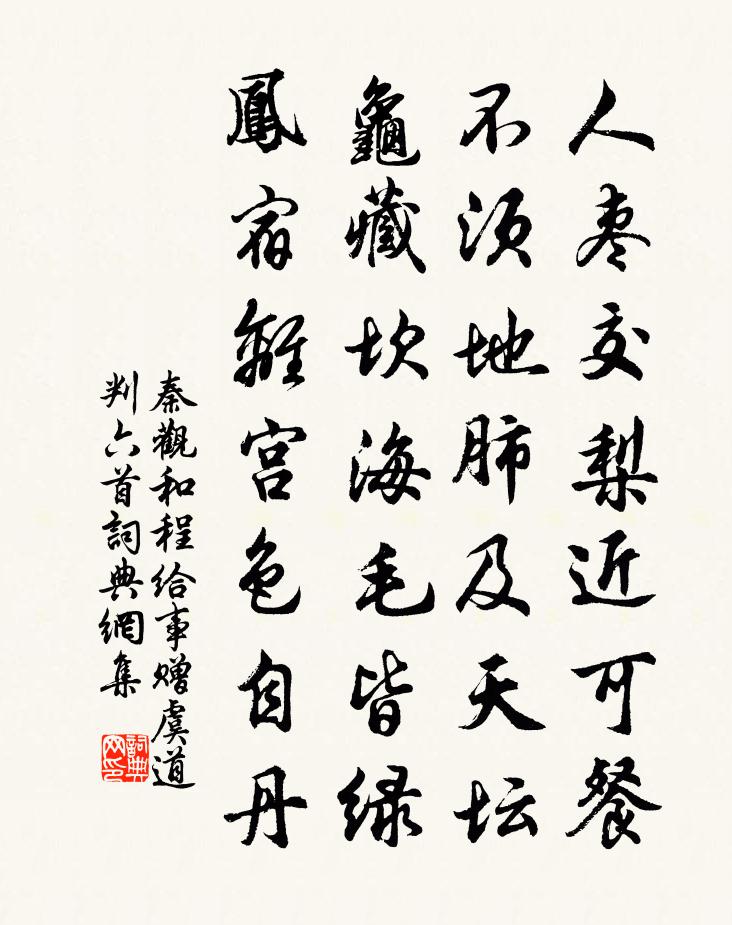 人枣交梨近可餐
不须地肺及天坛
龜藏坎海毛皆绿
鳳宿離宫色自丹
秦觀和程给事赠虞道
判六首詞典網集
詞典网印